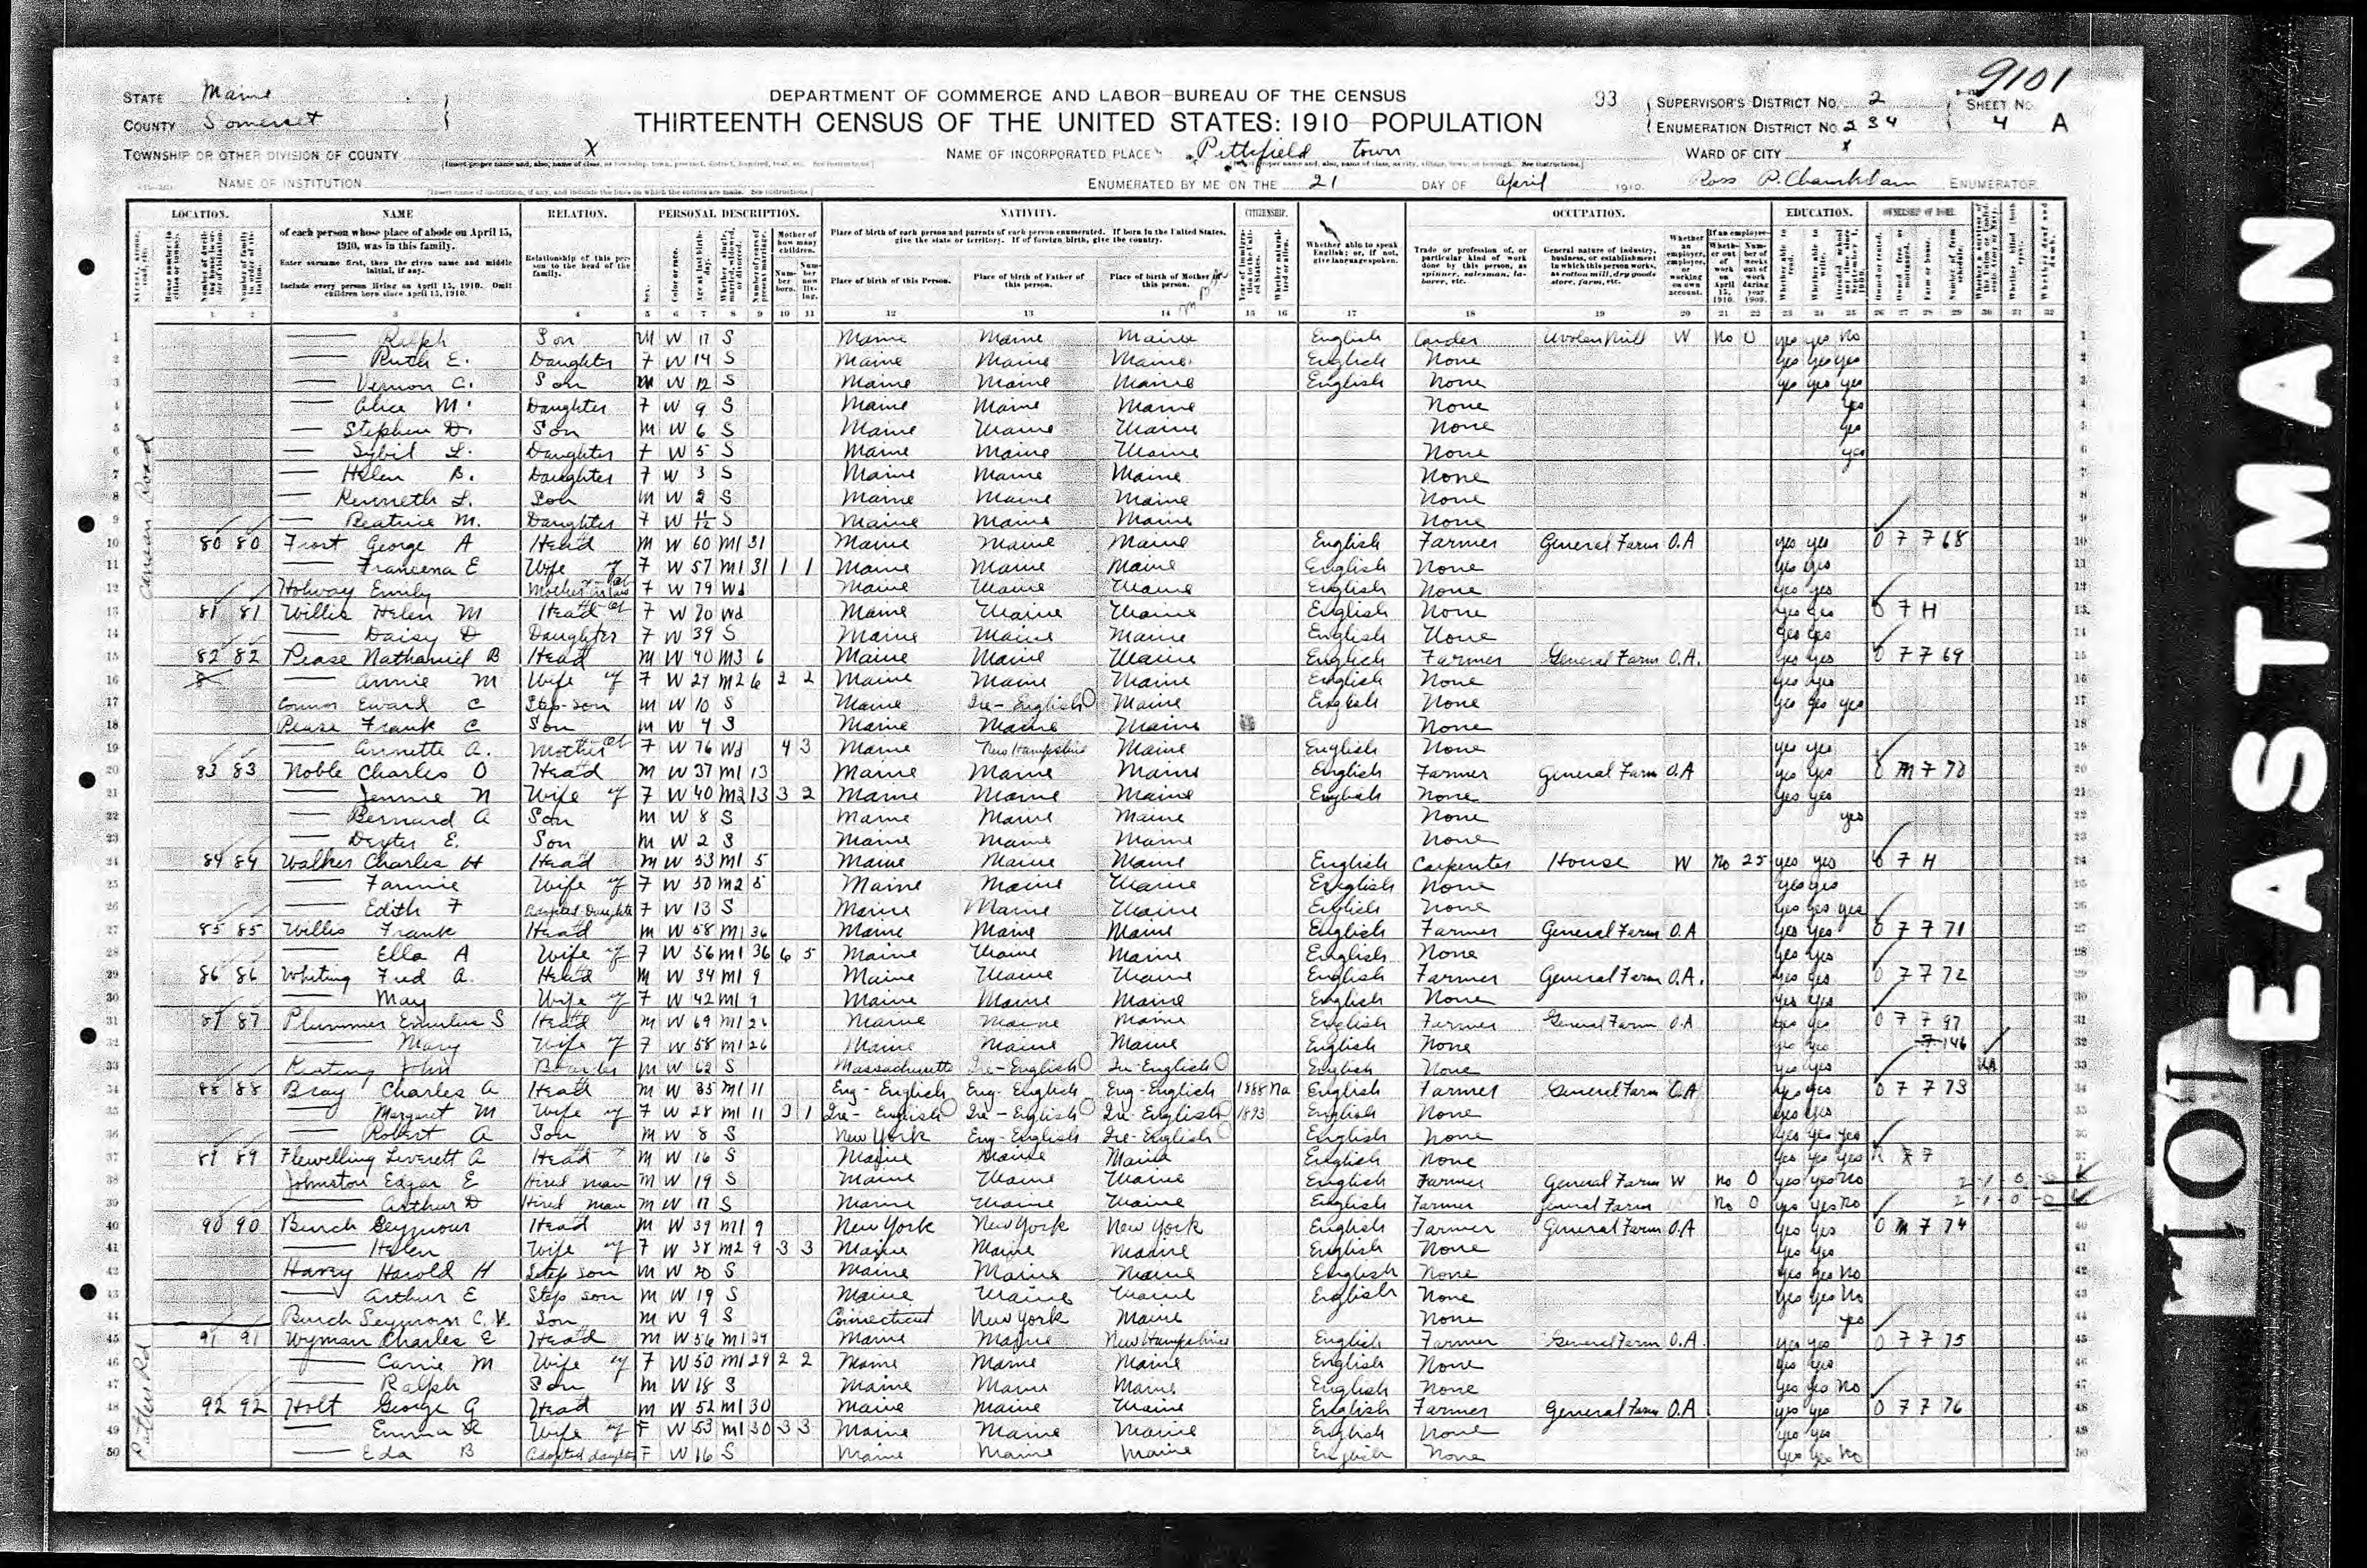 9101
STATE Maine
COUNTY Somerset
TOWNSHIP OR OTHER DIVISION OF COUNTY X
NAME OF INSTITUTION
DEPARTMENT OF COMMERCE AND LABOR—BUREAU OF THE CENSUS
THIRTEENTH CENSUS OF THE UNITED STATES: 1910—POPULATION
NAME OF INCORPORATED PLACE Pittsfield Town
ENUMERATED BY ME ON THE 21 DAY OF April 1910. Ross P. Chamberlain ENUMERATOR
93
SUPERVISOR'S DISTRICT NO. 2
ENUMERATION DISTRICT NO. 234
SHEET NO. 4 A
WARD OF CITY X
LOCATION. NAME RELATION. PERSONAL DESCRIPTION. NATIVITY. CITIZENSHIP. OCCUPATION. EDUCATION. OWNERSHIP OF HOME.
of each person whose place of abode on April 15, 1910, was in this family.
Enter surname first, then the given name and middle initial, if any.
Include every person living on April 15, 1910. Omit children born since April 15, 1910.
Relationship of this person to the head of the family.
Place of birth of each person and parents of each person enumerated. If born in the United States, give the state or territory. If of foreign birth, give the country.
Place of birth of this Person. Place of birth of Father of this person. Place of birth of Mother of this person.
Whether able to speak English; or, if not, give language spoken.
Trade or profession of, or particular kind of work done by this person, as spinner, salesman, laborer, etc.
General nature of industry, business, or establishment in which this person works, as cotton mill, dry goods store, farm, etc.
1 2 3 4 5 6 7 8 9 10 11 12 13 14 15 16 17 18 19 20 21 22 23 24 25 26 27 28 29 30 31 32
Canaan Road
1 — Ralph Son M W 17 S Maine Maine Maine English Carder Woolen Mill W No 0 yes yes no
2 — Ruth E. Daughter F W 14 S Maine Maine Maine English None yes yes yes
3 — Vernon C. Son M W 12 S Maine Maine Maine English None yes yes yes
4 — Alice M. Daughter F W 9 S Maine Maine Maine None yes
5 — Stephen D. Son M W 6 S Maine Maine Maine None yes
6 — Sybil L. Daughter F W 5 S Maine Maine Maine None yes
7 — Helen B. Daughter F W 3 S Maine Maine Maine None
8 — Kenneth L. Son M W 2 S Maine Maine Maine None
9 — Beatrice M. Daughter F W 11/12 S Maine Maine Maine None
10 80 80 Frost George A Head M W 60 M1 31 Maine Maine Maine English Farmer General Farm O.A yes yes O F F 68
11 — Francena E Wife of F W 57 M1 31 1 1 Maine Maine Maine English None yes yes
12 Holway Emily Mother in law F W 79 Wd Maine Maine Maine English None yes yes
13 81 81 Willis Helen M Head F W 70 Wd Maine Maine Maine English None yes yes O F H
14 — Daisy D Daughter F W 39 S Maine Maine Maine English None yes yes
15 82 82 Pease Nathaniel B Head M W 40 M3 6 Maine Maine Maine English Farmer General Farm O.A. yes yes O F F 69
16 — Annie M Wife of F W 29 M2 6 2 2 Maine Maine Maine English None yes yes
17 Connor Eward C Step-son M W 10 S Maine Ire-English Maine English None yes yes yes
18 Pease Frank C Son M W 4 S Maine Maine Maine None
19 — Annette A. Mother F W 76 Wd 4 3 Maine New Hampshire Maine English None yes yes
20 83 83 Noble Charles O Head M W 37 M1 13 Maine Maine Maine English Farmer General Farm O.A yes yes O M F 70
21 — Jennie N Wife of F W 40 M2 13 3 2 Maine Maine Maine English None yes yes
22 — Bernard A Son M W 8 S Maine Maine Maine None yes
23 — Dexter E. Son M W 2 S Maine Maine Maine None
24 84 84 Walker Charles H Head M W 53 M1 5 Maine Maine Maine English Carpenter House W No 25 yes yes O F H
25 — Fannie Wife of F W 50 M2 5 Maine Maine Maine English None yes yes
26 — Edith F Adopted Daughter F W 13 S Maine Maine Maine English None yes yes yes
27 85 85 Willis Frank Head M W 58 M1 36 Maine Maine Maine English Farmer General Farm O.A yes yes O F F 71
28 — Ella A Wife of F W 56 M1 36 6 5 Maine Maine Maine English None yes yes
29 86 86 Whiting Fred A. Head M W 34 M1 9 Maine Maine Maine English Farmer General Farm O.A. yes yes O F F 72
30 — May Wife of F W 42 M1 9 Maine Maine Maine English None yes yes
31 87 87 Plummer S Head M W 69 M1 26 Maine Maine Maine English Farmer General Farm O.A yes yes O F F 97
32 — Mary Wife of F W 58 M1 26 Maine Maine Maine English None yes yes 146
33 Keating John Boarder M W 62 S Massachusetts Ire-English Ire-English English None yes yes UA
34 88 88 Bray Charles A Head M W 35 M1 11 Eng-English Eng-English Eng-English 1888 Na English Farmer General Farm O.A yes yes O F F 73
35 — Margaret M Wife of F W 28 M1 11 3 1 Ire-English Ire-English Ire-English 1893 English None yes yes
36 — Robert A Son M W 8 S New York Eng-English Ire-English English None yes yes yes
37 89 89 Flewelling Leverett A Head M W 16 S Maine Maine Maine English None yes yes yes R F
38 Johnston Edgar E Hired man M W 19 S Maine Maine Maine English Farmer General Farm W No 0 yes yes No 2 1 0
39 — Arthur D Hired man M W 17 S Maine Maine Maine English Farmer General Farm No 0 yes yes No 2 1 0 0
40 90 90 Burch Seymour Head M W 39 M1 9 New York New York New York English Farmer General Farm O.A yes yes O M F 74
41 — Helen Wife of F W 38 M2 9 3 3 Maine Maine Maine English None yes yes
42 Harvy Harold H Step son M W 20 S Maine Maine Maine English None yes yes No
43 — Arthur E Step son M W 19 S Maine Maine Maine English None yes yes No
44 Burch Seymour C. V. Son M W 9 S Connecticut New York Maine None yes
45 91 91 Wyman Charles E Head M W 56 M1 29 Maine Maine New Hampshire English Farmer General Farm O.A. yes yes O F F 75
46 — Carrie M Wife of F W 50 M1 29 2 2 Maine Maine Maine English None yes yes
47 — Ralph Son M W 18 S Maine Maine Maine English None yes yes No
48 92 92 Holt George G Head M W 52 M1 30 Maine Maine Maine English Farmer General Farm O.A yes yes O F F 76
49 — Emma Wife of F W 53 M1 30 3 3 Maine Maine Maine English None yes yes
50 — Eda B Adopted daughter F W 16 S Maine Maine Maine English None yes yes No
EASTMAN
101